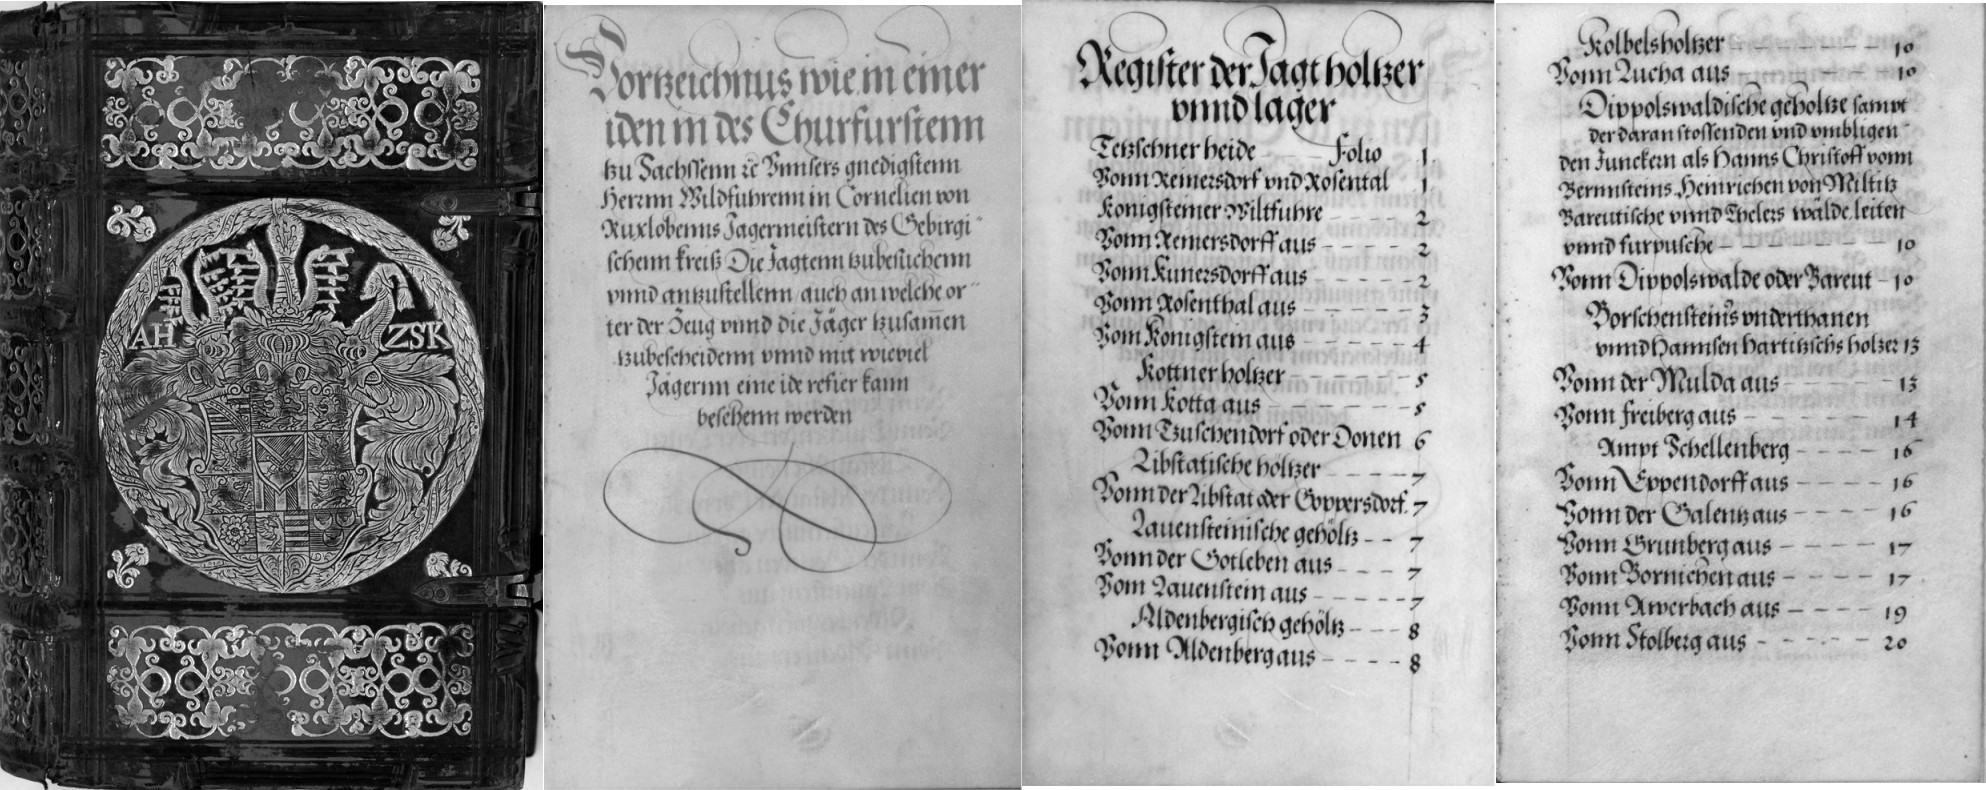 AH
ZSK
Vortzeichnus wie in einer
iden in des Churfurstenn
tzu Sachssenn ꝛc Vnnsers gnedigstenn
Herrnn Wildfuhrenn in Cornelien von
Ruxlobenns Jagermeistern des Gebirgi¨
schenn kreiß Die Jagtenn tzubesuchenn
vnnd antzustellenn auch an welche or¨
ter der Zeug vnnd die Jäger tzusamen
tzubescheidenn vnnd mit wieviel
Jägernn eine ide refier kann
besehenn werden
Register der Jagt holtzer
vnnd lager
Tetzschner heide Folio 1
Vonn Reinersdorf vnd Rosental 1
Konigsteiner Wiltfuhre - - - - 2
Vonn Reinersdorff aus - - - - - 2
Vonn Kunersdorff aus - - - - - 2
Vonn Rosenthal aus - - - - - - 3
Vom Konigstein aus - - - - - - 4
Kottner holtzer - - - - - 5
Vonn Kotta aus - - - - - - 5
Vonn Tzuschendorf oder Donen 6
Libstatische höltzer - - - - 7
Vonn der Libstat oder Goppersdorf. 7
Lauensteinische gehöltz - - 7
Vonn der Gotleben aus - - - - 7
Vom Lauenstein aus - - - - - 7
Aldenbergisch gehöltz - - - 8
Vonn Aldenberg aus - - - - - 8
Kolbelsholtzer - - - - - - - 10
Vonn Lucha aus - - - - - - 10
Dippolswaldische geholtze sampt
der daran stossenden vnd vmbligen¨
den Junckern als Hanns Christoff vonn
Bernnsteins, Heinrichen von Miltitz
Bareutische vnnd Thelers wälde, leiten
vnnd furpusche - - - - - - - 10
Vonn Dippolswalde oder Bareut - 10
Porschensteins vnderthanen
vnnd Hannsen hartitzschs holzer 13
Vonn der Mulda aus - - - - - 13
Vonn freiberg aus - - - - - - 14
Ampt Schellenberg - - - - 16
Vonn Eppendorff aus - - - - 16
Vonn der Galentz aus - - - - 16
Vonn Grunberg aus - - - - - 17
Vonn Bornichen aus - - - - - 17
Vonn Awerbach aus - - - - - 19
Vonn Stolberg aus - - - - - - 20